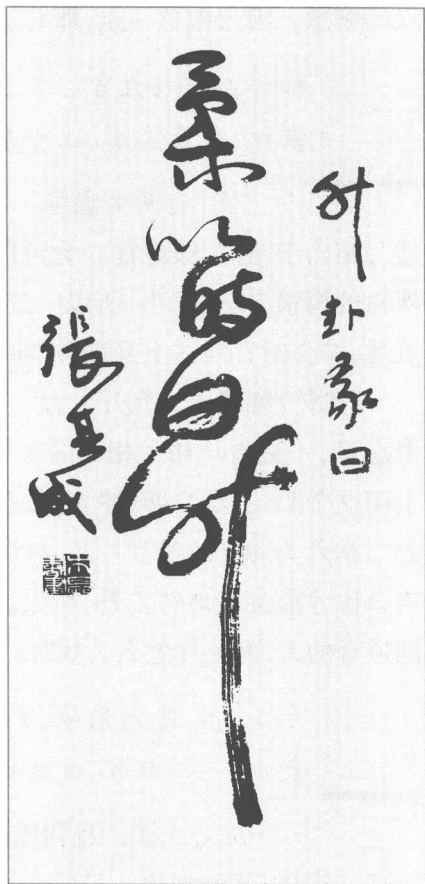 升卦彖曰
柔以時升
張其成